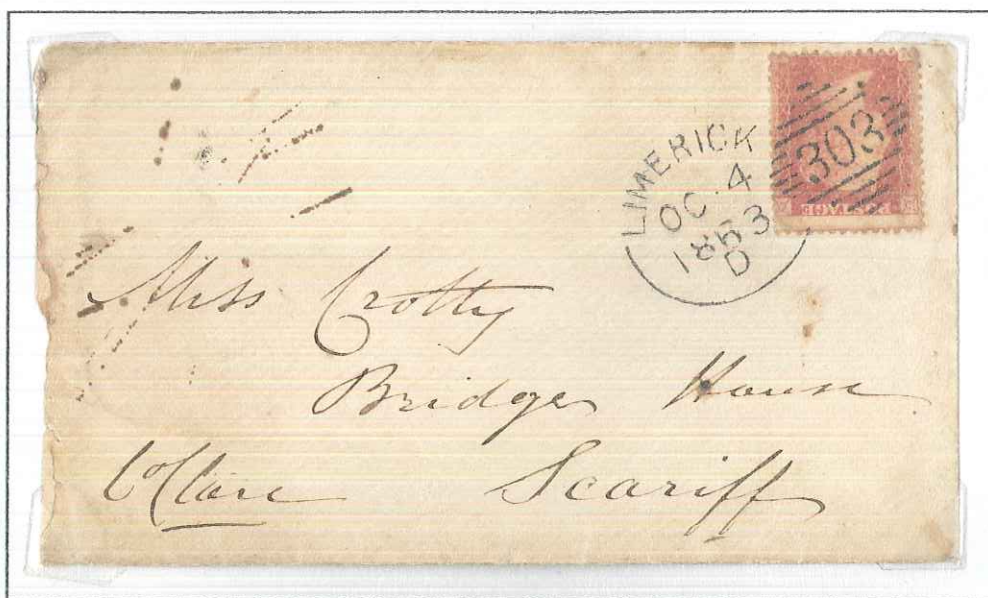 LIMERICK
OC 4
1863
D
303
POSTAGE
Miss Crotty
Bridge House
Co Clare Scariff